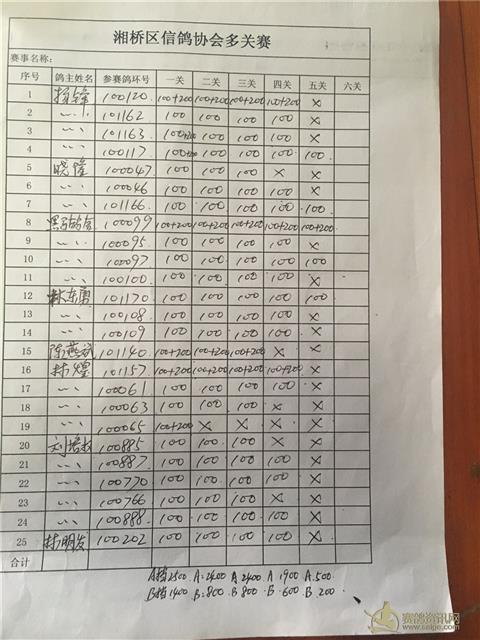 湘桥区信鸽协会多关赛
赛事名称:
序号 鸽主姓名 参赛鸽环号 一关 二关 三关 四关 五关 六关
1 100120 100+200 100+200 100+200 100+200 ×
2 101162 100 100 100 100 ×
3 101163 100+200 100 100 100 ×
4 100117 100+200 100 100 100 100
5 晓隆 100047 100 100 100 × ×
6 100046 100 100 100 100 ×
7 101166 100 100 100 100 100
8 100099 100+200 100+200 100+200 100+200 100+200
9 100095 100 100 100 100 ×
10 100097 100 100 100 100 100
11 100100 100 100 100 100 ×
12 林东勇 101170 100 100 100 100 100
13 100108 100 100 100 100 ×
14 100109 100 100 100 100 ×
15 陈燕斌 101140 100+200 100+200 100+200 × ×
16 林煌 101157 100+200 100+200 100+200 100+200 ×
17 100061 100 100 100 100 ×
18 100063 100 100 100 × ×
19 100065 100+200 × × × ×
20 100885 100 100 100 × ×
21 100887 100 100 100 100 ×
22 100770 100 100 100 100 ×
23 100766 100 100 100 × ×
24 100888 100 100 100 100 ×
25 林明发 100202 100 100 100 100 ×
合计
A档2500 A·2400 A 2400 A 1900 A·500
B档1400 B·800 B 800 B·600 B 200
赛鸽资讯网
www.saige.com